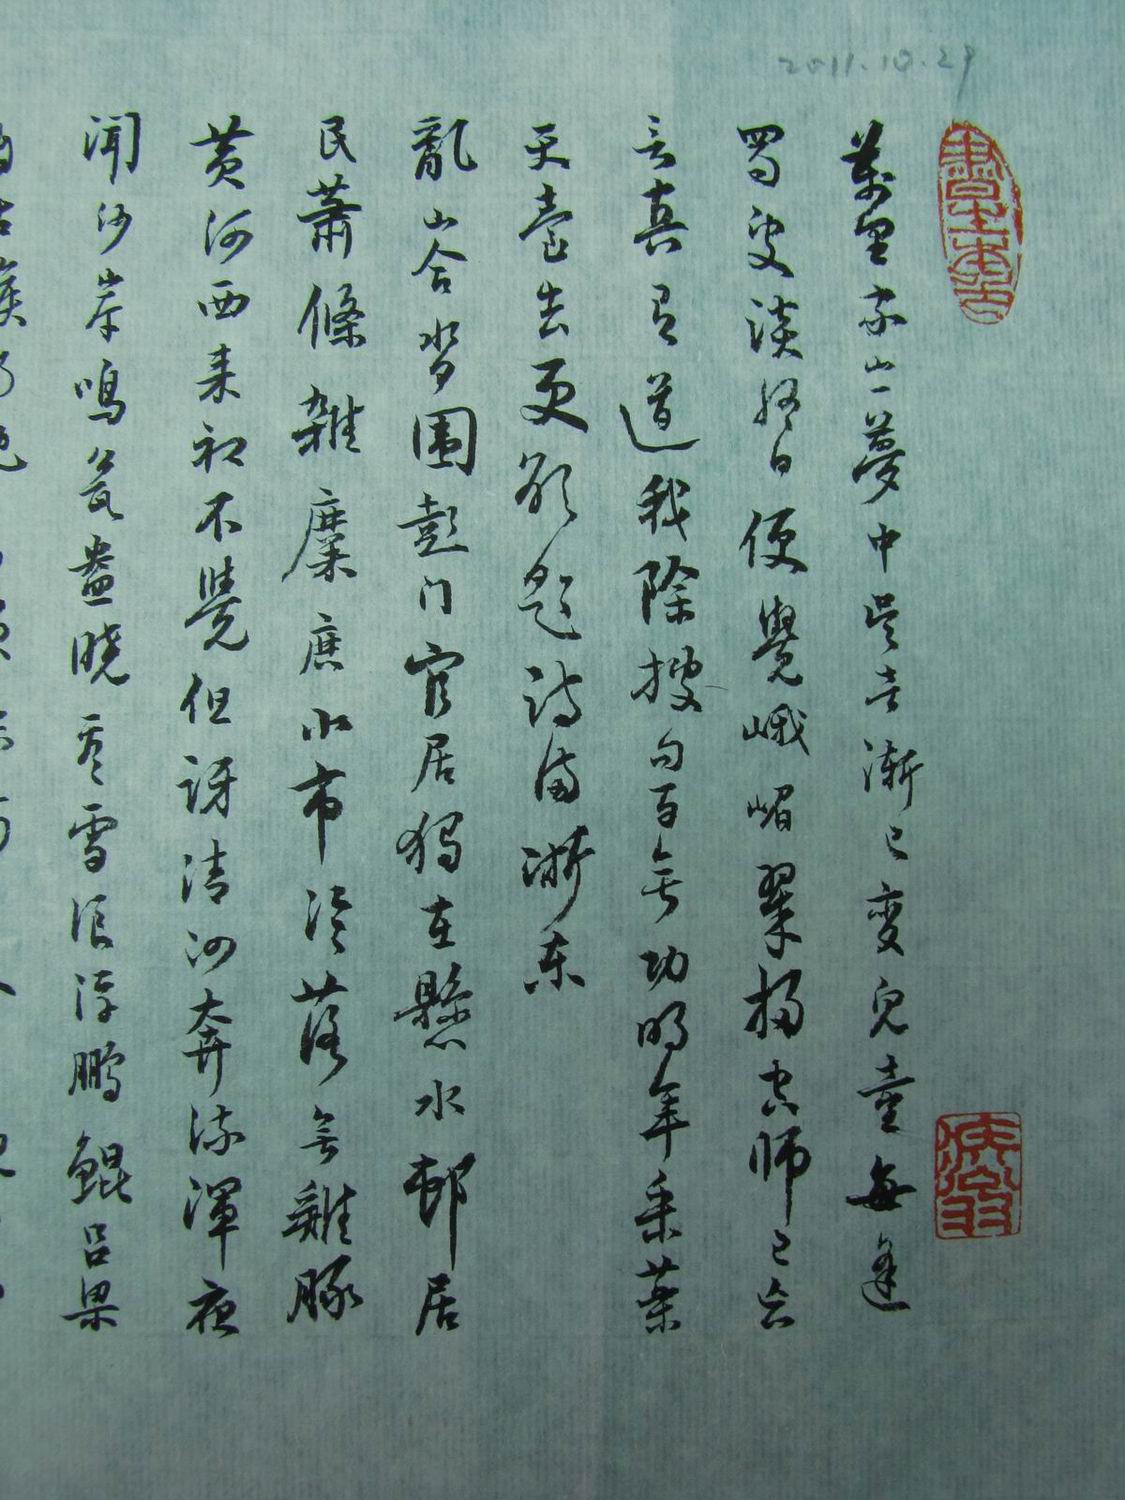 2011.10.29
萬里家山一夢中吳音漸已變兒童每逢
蜀叟談終日便覺峨嵋翠掃空師已忘
言真有道我除搜句百無功明年采藥
天臺去更欲題詩滿浙東
亂山合沓圍彭门官居獨在懸水邨居
民蕭條雜麋鹿小市冷落無雞豚
黃河西来初不覺但訝清泗奔流渾夜
聞沙岸鳴瓮盎曉看雪浪浮鵬鯤呂梁